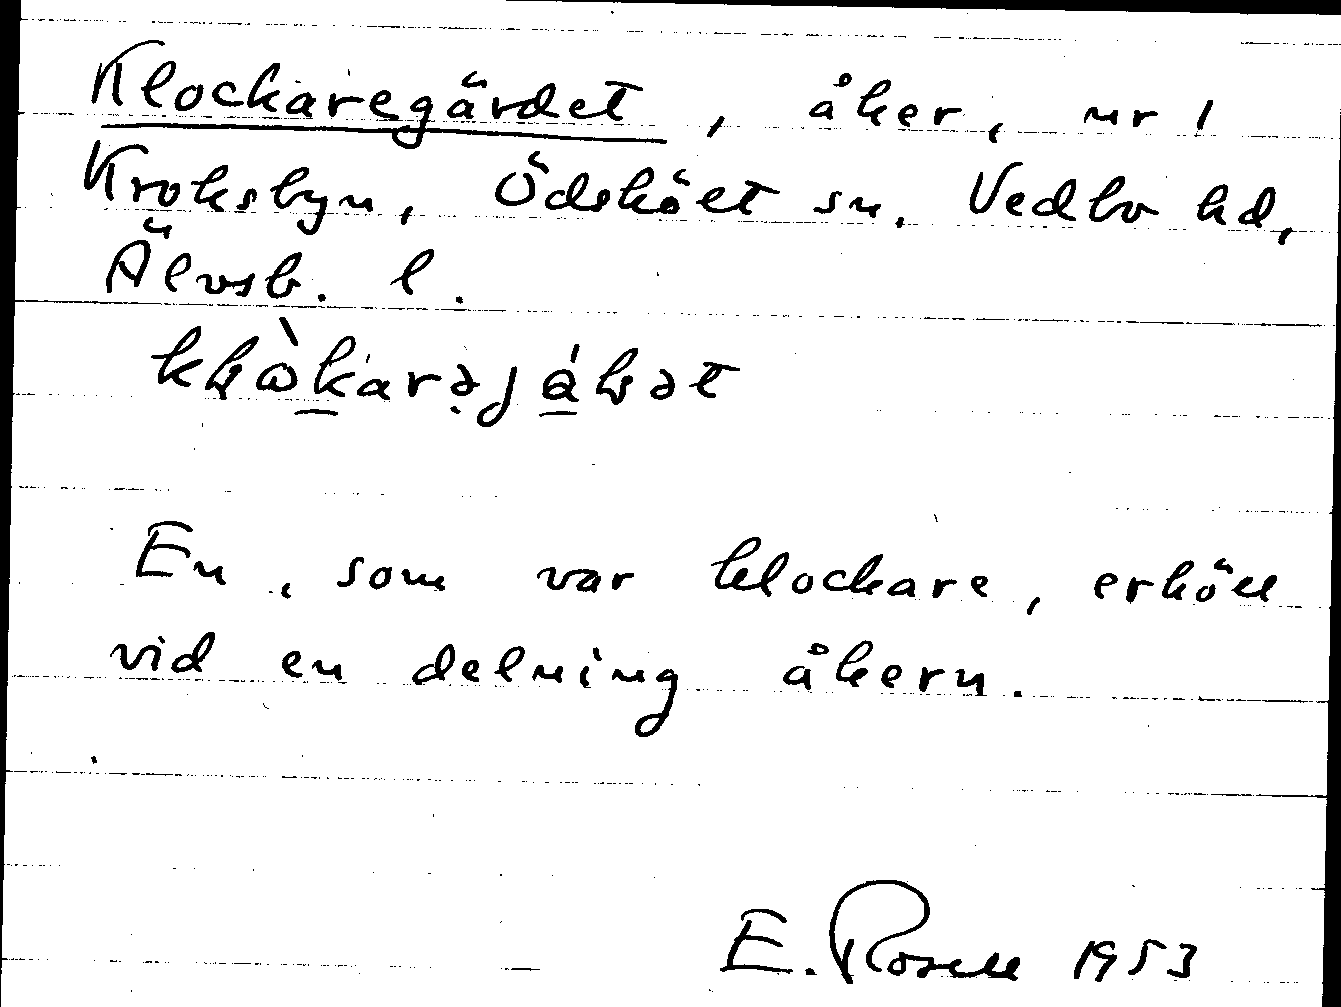 Klockaregärdet, åker, nr 1
Kroksbyn, Ödsköët sn. Vedbo hd,
Älvsb. l.
En, som var klockare, erhöll
vid en delning åkern.
E. Rosell 1953